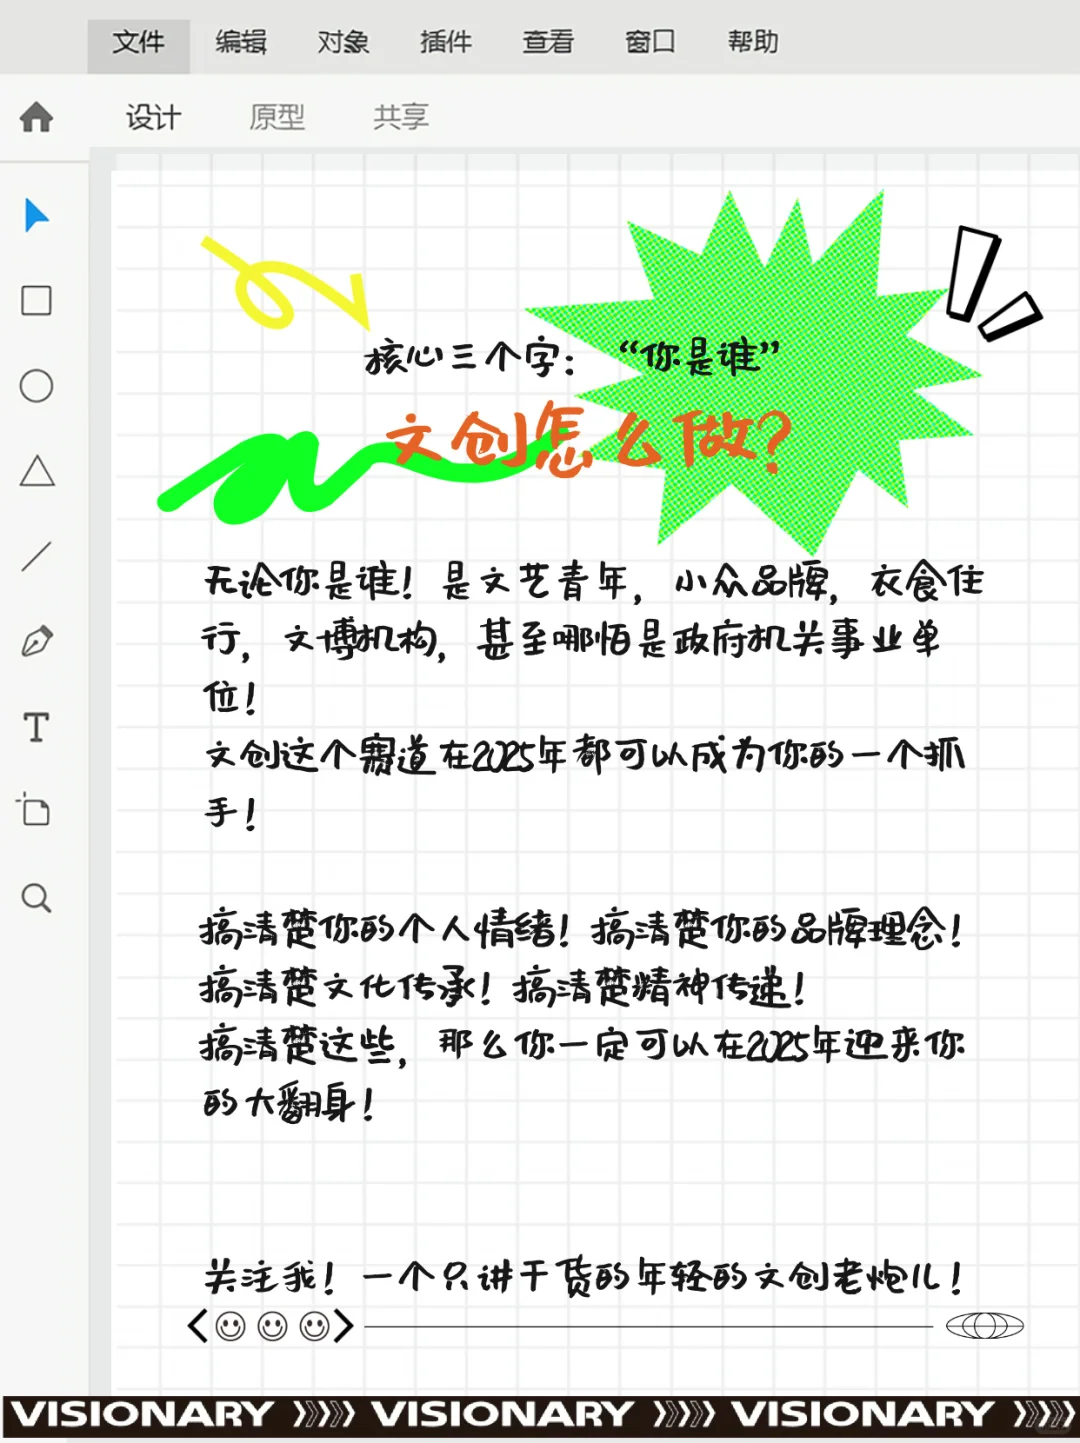 文件 编辑 对象 插件 查看 窗口 帮助
设计 原型 共享
核心三个字：“你是谁”
文创怎么做？
无论你是谁！是文艺青年，小众品牌，衣食住
行，文博机构，甚至哪怕是政府机关事业单
位！
文创这个赛道在2025年都可以成为你的一个抓
手！
搞清楚你的个人情绪！搞清楚你的品牌理念！
搞清楚文化传承！搞清楚精神传递！
搞清楚这些，那么你一定可以在2025年迎来你
的大翻身！
关注我！一个只讲干货的年轻的文创老炮儿！
VISIONARY VISIONARY VISIONARY